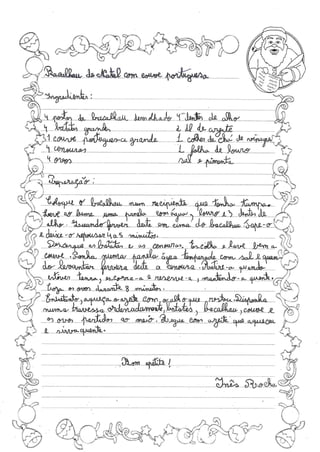 Bacalhau de Natal com couve portuguesa
Ingredientes:
4 postas de bacalhau demolhado 4 dentes de alho
4 batatas grandes 2 dl de azeite
1 couve portuguesa grande 1 colher de chá de vinagre
4 cenouras 1 folha de louro
4 ovos sal e pimenta
Preparação:
Coloque o bacalhau num recipiente que tenha tampa.
Leve ao lume uma panela com água, louro e 3 dentes de
alho. Quando ferver deite em cima do bacalhau. Tape-o
e deixe-o repousar 4 a 5 minutos.
Descasque as batatas e as cenouras. Escolha e lave bem a
couve. Ponha numa panela água temperada com sal e quan-
do levantar fervura deite a cenoura. Junte-a quando
estiver tenra, e reserve-a, mantendo-a quente.
Coza os ovos durante 8 minutos.
Entretanto, aqueça o azeite com o alho que restou. Disponha
numa travessa ordenadamente, batatas, bacalhau, couve e
os ovos partidos ao meio. Regue com azeite que aqueceu
e sirva quente.
Bom apetite!
Inês Rocha